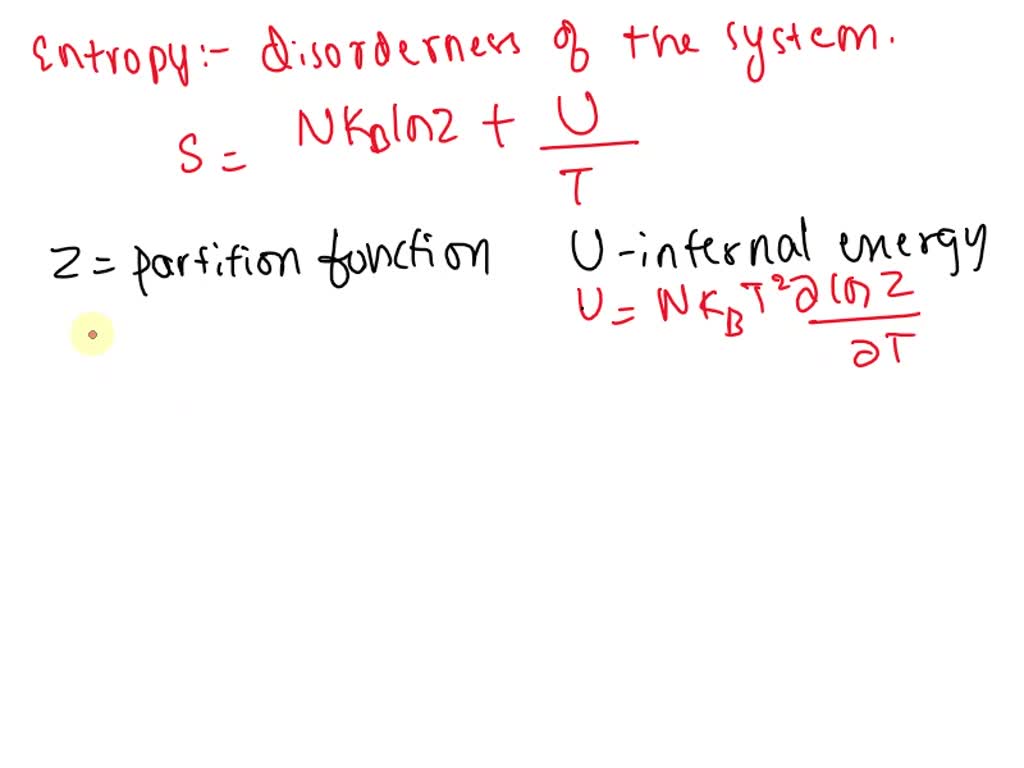 Entropy:- disorderness of the system.
S = NKBln Z + U/T
Z = partition function U - internal energy
U = NKBT² ∂ ln Z/∂T